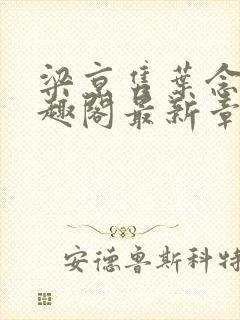 梁京隽叶念
趣阁最新章
安德鲁斯科特